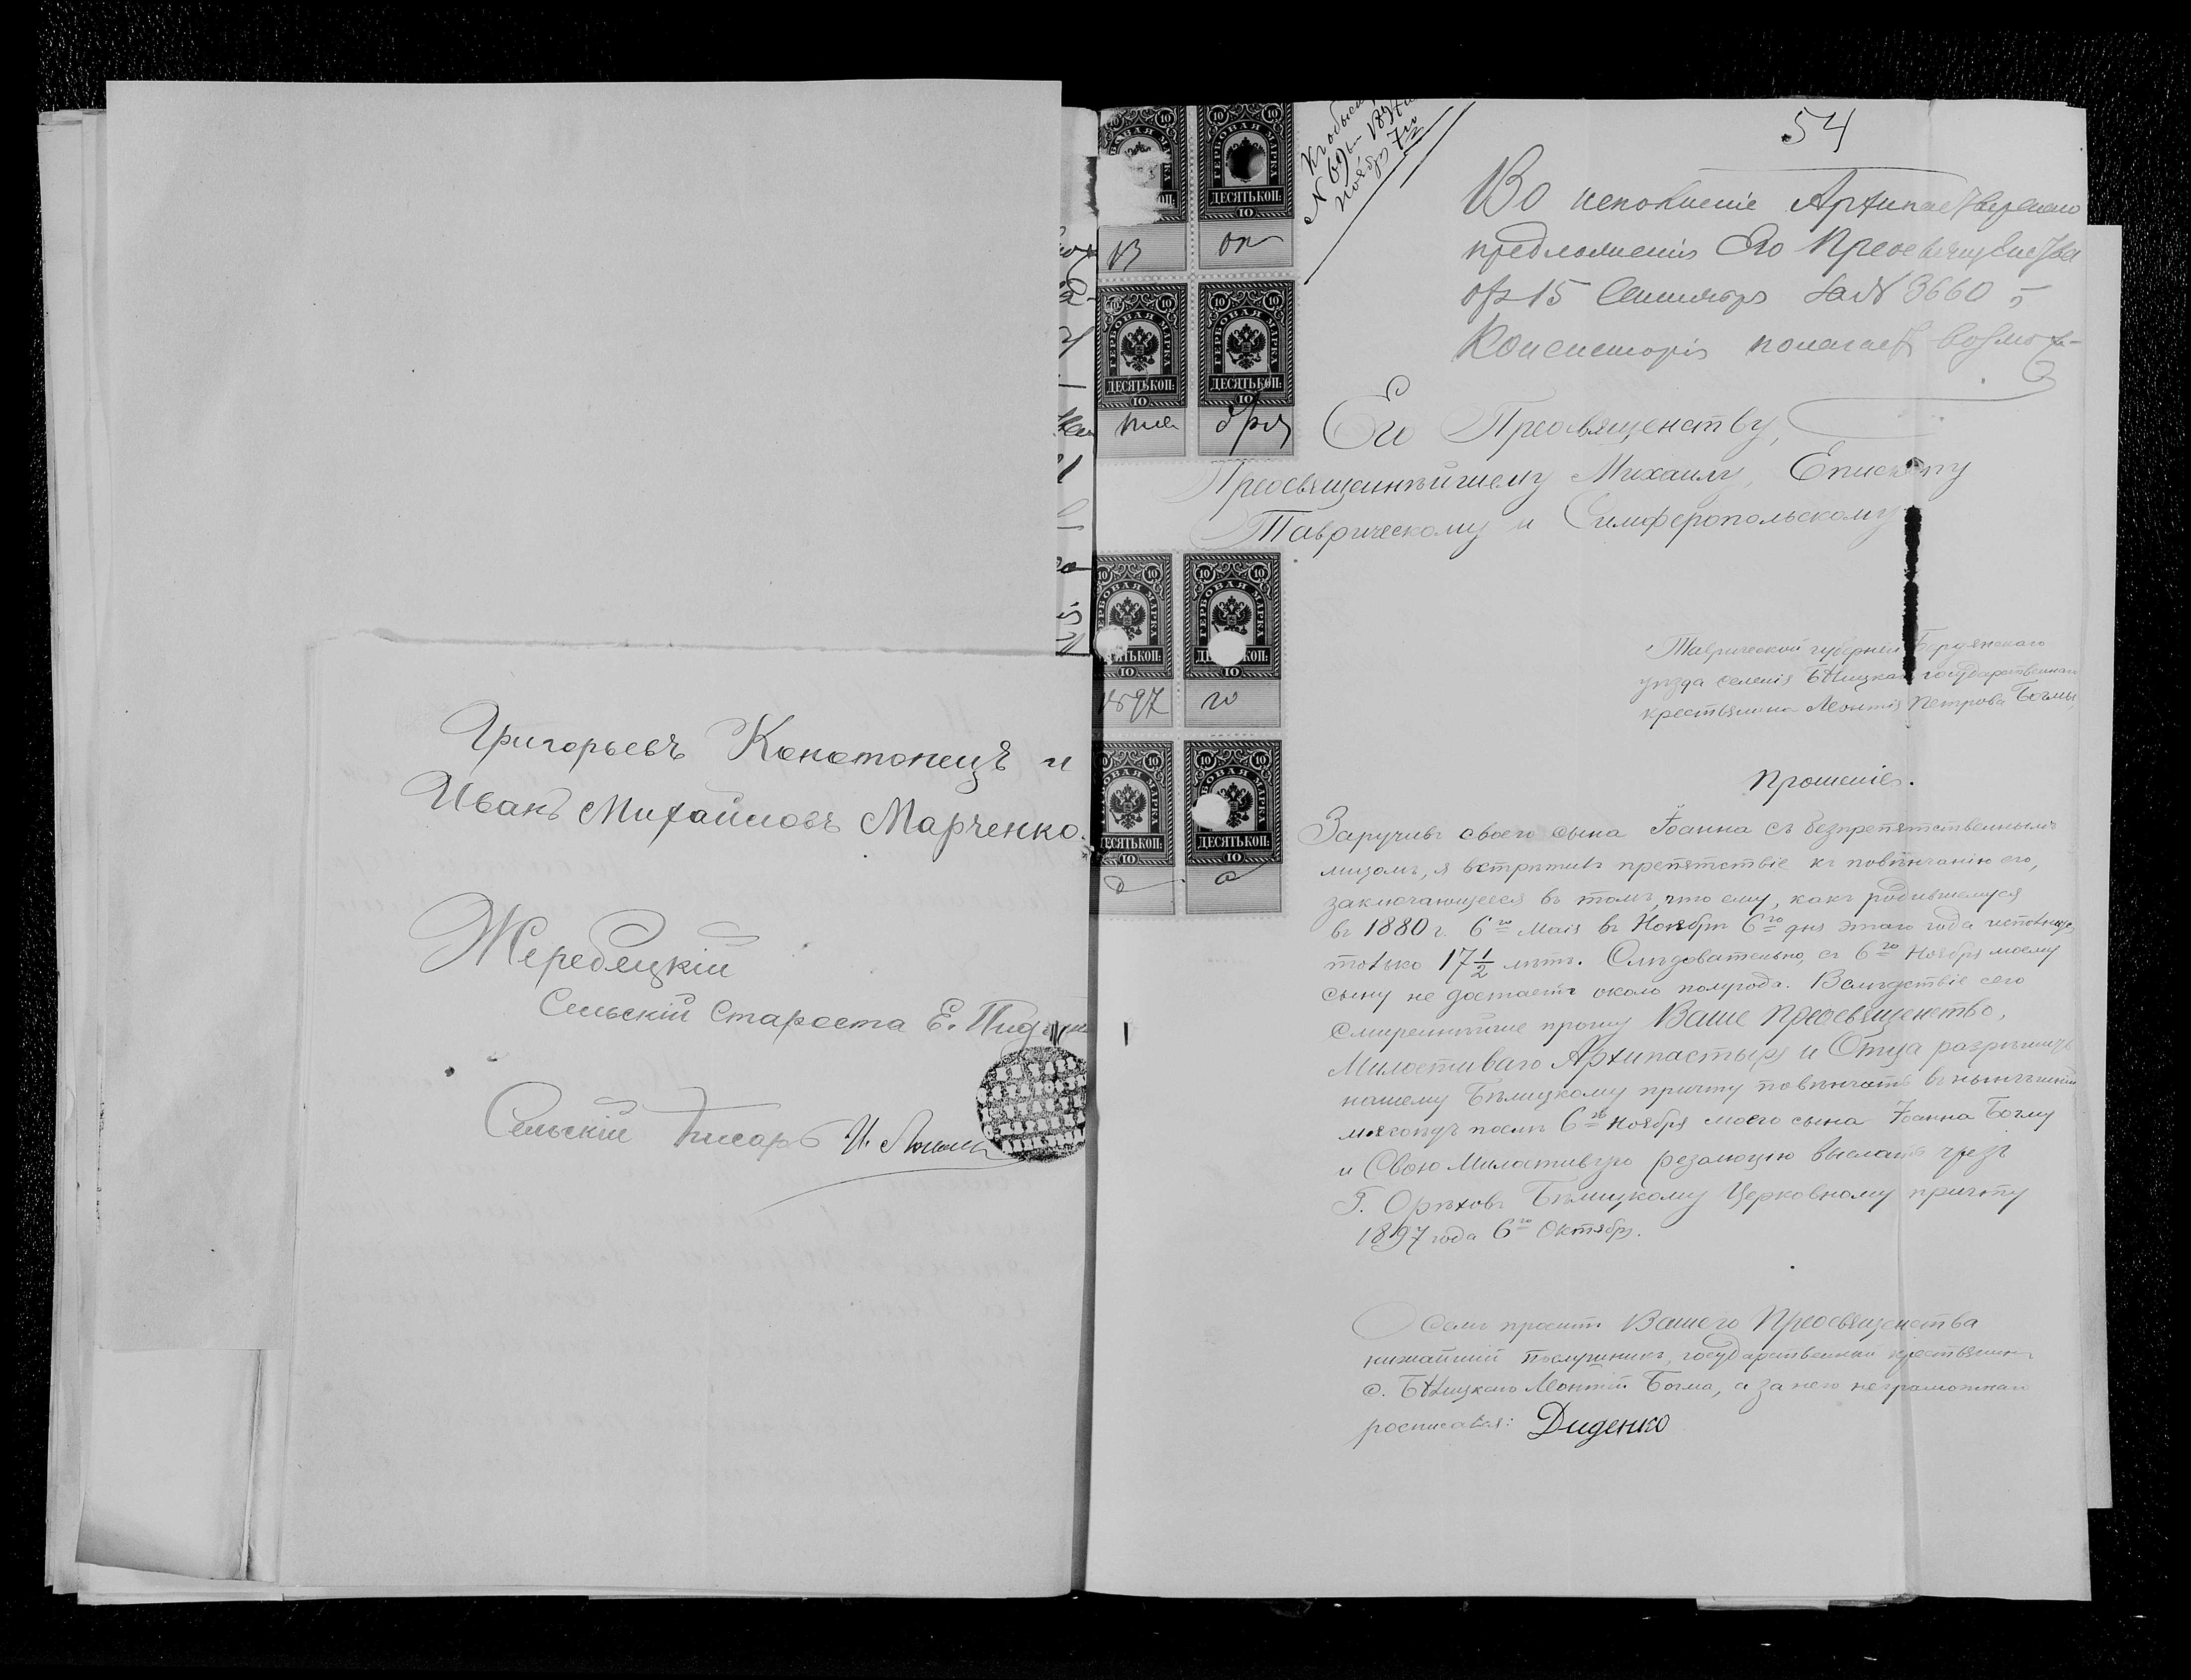 Григорьевъ Конотопецъ и
Иванъ Михайловъ Марченко.
Жеребецкій
Сельскій Староста Е.
Сельскій Писарь И.
54
Къ обыску
N 69
Ноября 7го
Во исполненіе Архипастырскаго
предложенія Его Преосвященства
отъ 15 Сентября за N 3660,
Консисторія полагаетъ возмож-
Его Преосвященству,
Преосвященнѣйшему Михаилу, Епископу
Таврическому и Симферопольскому
ГЕРБОВАЯ МАРКА
ДЕСЯТЬ КОП:
10
1897 го
Таврической губерніи Бердянскаго
уѣзда селенія Бѣлицкаго государственнаго
крестьянина Леонтія Петрова Богмы
Прошеніе.
Заручивъ своего сына Іоанна съ безпрепятственнымъ
лицомъ, я встрѣтилъ препятствіе къ повѣнчанію его,
заключающееся въ томъ, что ему, какъ родившемуся
въ 1880 г. 6го Маія въ Ноябрѣ 6го дня этаго года исполнится
только 17 1/2 лѣтъ. Слѣдовательно, съ 6го Ноября моему
сыну не достаетъ около полугода. Вслѣдствіе сего
смиреннѣйше прошу Ваше Преосвященство,
Милостиваго Архипастыря и Отца разрѣшить
нашему Бѣлицкому причту повѣнчать въ нынѣшній
мясоѣдъ послѣ 6го Ноября моего сына Іоанна Богму
и Свою Милостивую резолюцію выслать чрезъ
Г. Орѣховъ Бѣлицкому Церковному причту
1897 года 6го Октября.
О семъ проситъ Вашего Преосвященства
нижайшій послушникъ, государственный крестьянинъ
с. Бѣлицкаго Леонтій Богма, а за него неграмотнаго
росписался: Диденко